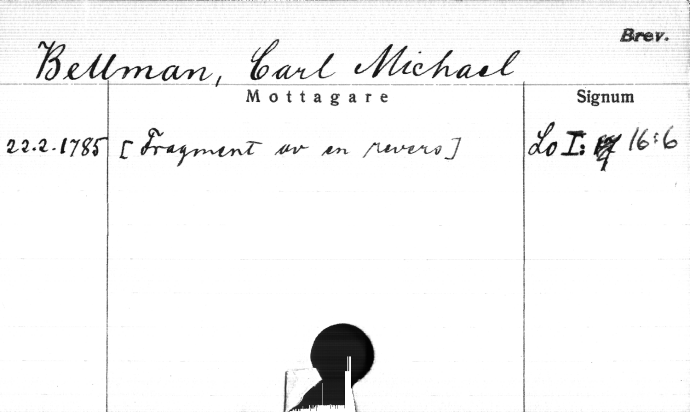 Brev.
Bellman, Carl Michael
Mottagare Signum
22.2.1785 [Fragment av en revers] Lo I: 16:6